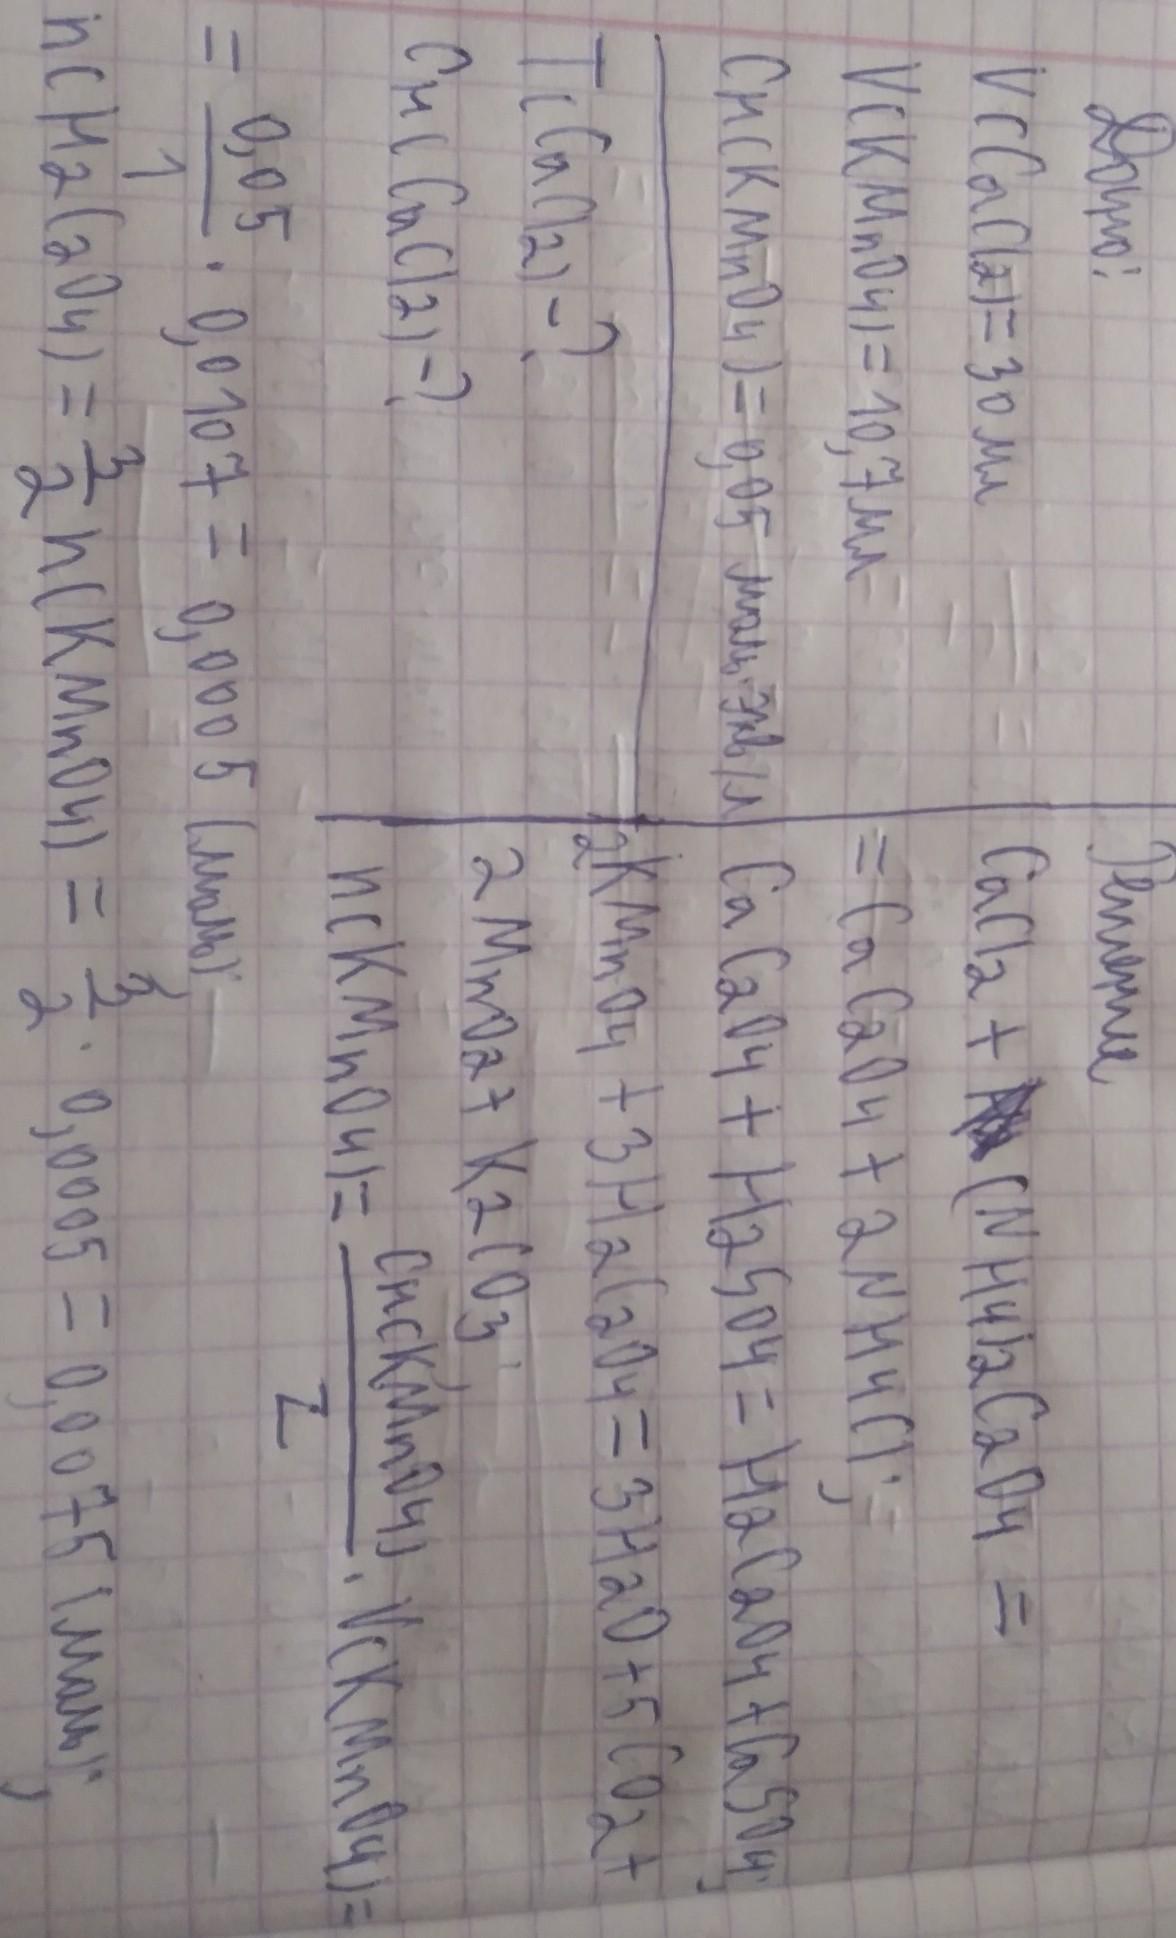 Дано:
V(CaCl2)=30 мл
V(KMnO4)=10,7 мл
Cн(KMnO4)=0,05 моль·экв/л
T(CaCl2)-?
Cн(CaCl2)-?
Решение
CaCl2 + (NH4)2C2O4 =
= CaC2O4 + 2NH4Cl;
CaC2O4 + H2SO4 = H2C2O4 + CaSO4;
2KMnO4 + 3H2C2O4 = 3H2O + 5CO2 +
2MnO2 + K2CO3;
n(KMnO4) = Cн(KMnO4)/Z · V(KMnO4) =
= 0,05/1 · 0,0107 = 0,0005 (моль)
n(H2C2O4) = 3/2 n(KMnO4) = 3/2 · 0,0005 = 0,0075 (моль);